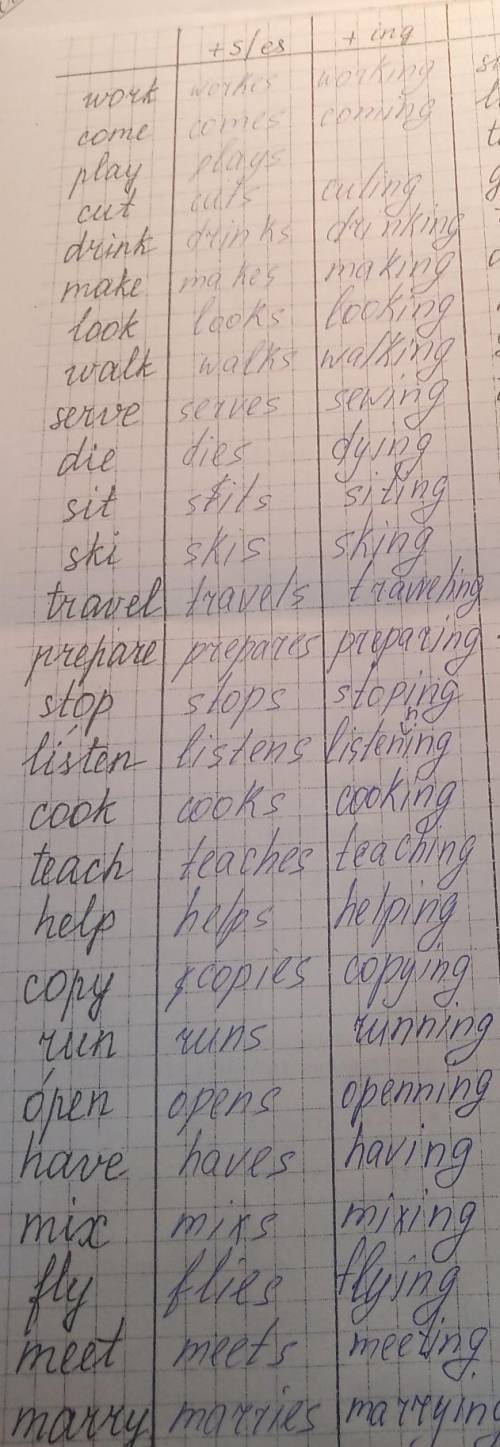 +s/es + ing
work workes working
come comes coming
play plays
cut cuts cuting
drink drinks drinking
make makes making
look looks looking
walk walks walking
serve serves sewing
die dies dying
sit sits siting
ski skis sking
travel travels travveling
prepare prepares preparing
stop stops stoping
lísten listens listening
cook cooks cooking
teach teaches teaching
help helps helping
copy copies copying
run runs running
ópen opens openning
have haves having
mix mixs mixing
fly flies flying
meet meets meeting
marry marries marrying